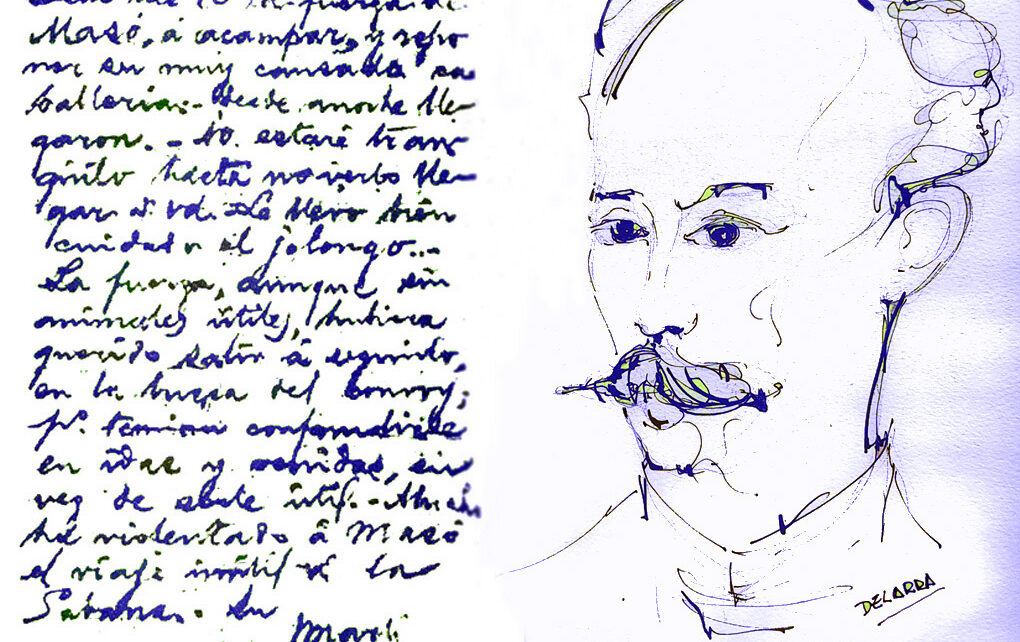 Masó, á acampar, y repo
ner su muy cansada ca
balleria:- desde anoche lle-
garon.- No. estaré tran
quilo hasta no verlo lle-
gar á Vd. Le llevo bien
cuidado el jolongo.-
La fuerza, aunque sin
animales útiles, hubiera
querido salir á seguirlo,
en la busca del convoy;
pº. temian confundirse
en idas y venidas, en
vez de serle útil.-
ha violentado á Masó
el viaje inútil á la
Sabana.- Su
Martí
DELARRA